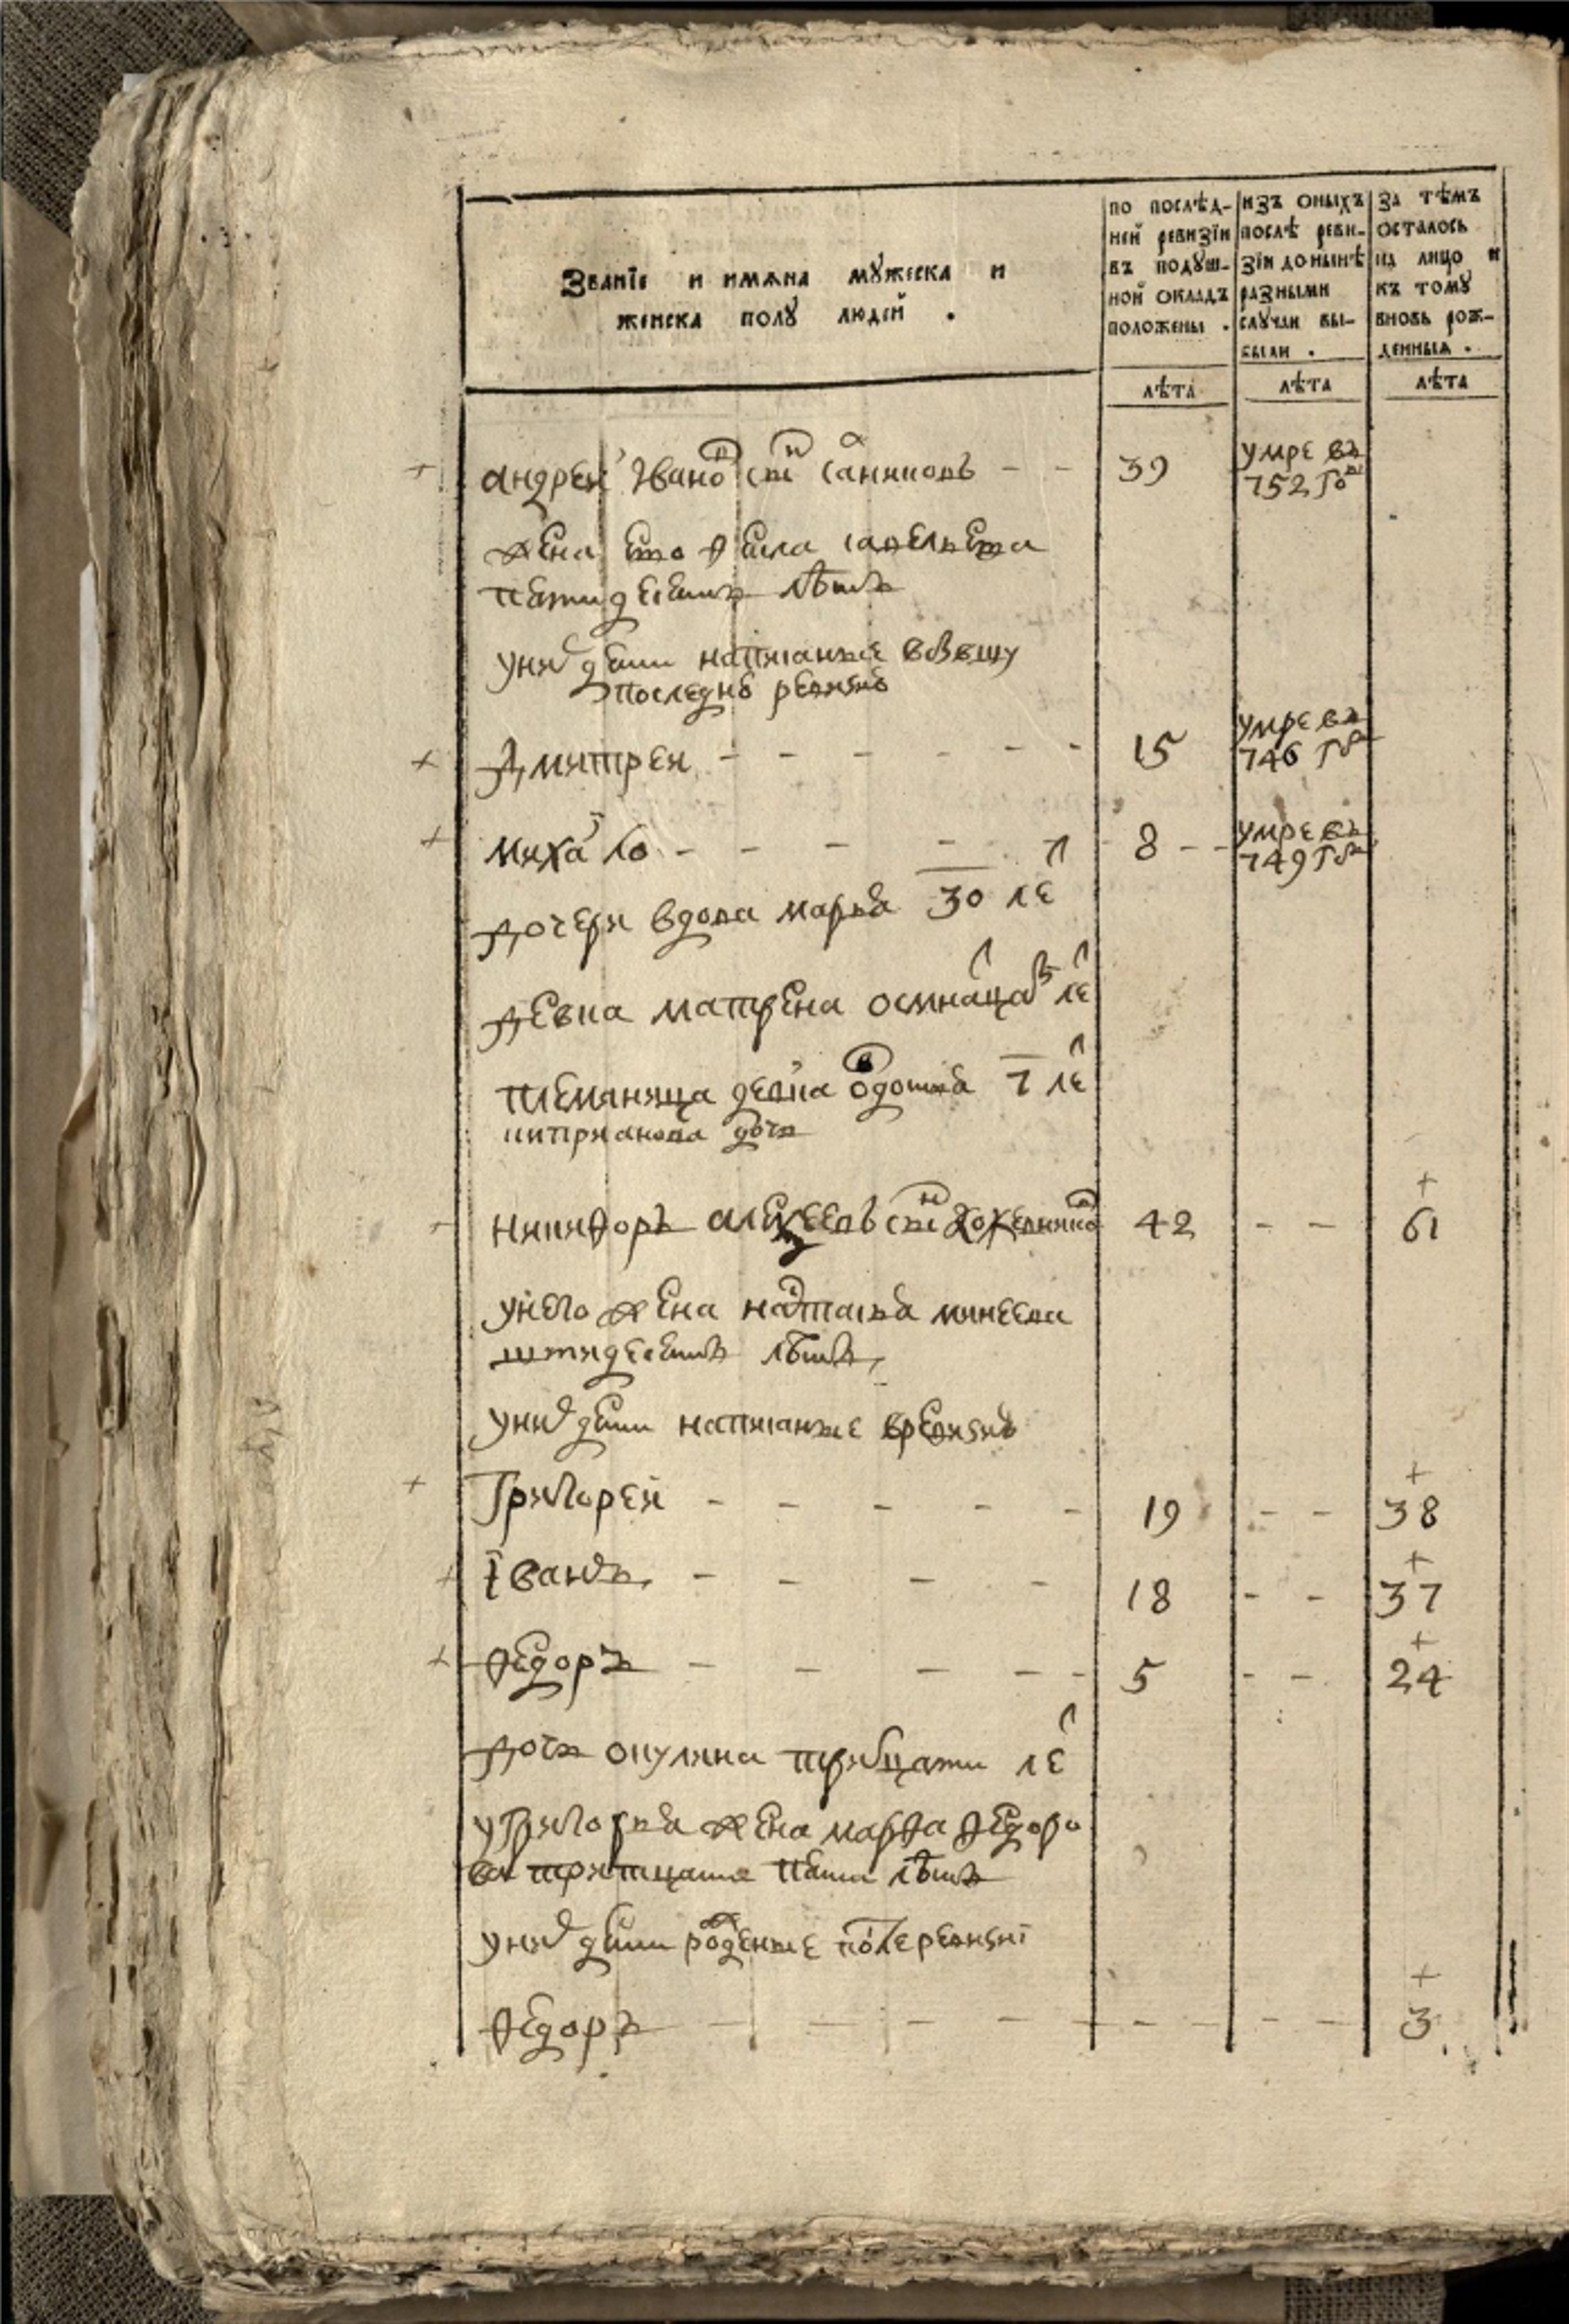 Званїе и имѧна мꙋжеска и
женска полꙋ людей .
по послѣд-
ней ревизїи
въ подꙋш-
ной окладъ
положены .
изъ оныхъ
послѣ реви-
зїи донынѣ
разными
слꙋчаи вы-
были .
за тѣмъ
осталось
на лицо и
къ томꙋ
вновь рож-
денныѧ .
лѣта
лѣта
лѣта
андрей Iвановъ снъ Саниковъ - - 39 умре въ
752 го
жена его
петидесять лѣтъ
униⷯ дети написанные
последнеѣ ревизиѣ
Дмитреи - - - - - - 15 умре въ
746 гоⷣ
михаⷵло - - - - 8 - - умре въ
749 гоⷣ
дочери вдова марья 30 леⷮ
девка матрена осмнаⷣцаⷮ леⷮ
племяница девка овдотья 7 леⷮ
киприанова дочь
никифоръ алеѯеевъ снъ 42 - - 61
унего жена наталья минеева
лѣтъ
униⷯ дети написанные вревизиѣ
Григорей - - - - - 19 - - 38
Iванъ - - - - 18 - - 37
Ѳедоръ - - - - - 5 - - 24
дочь окулина тритцати леⷮ
уГригорья жена марѳа ѳедоро
ва тритцати пяти лѣтъ
униⷯ дети рожденные после ревизиї
Ѳедоръ - - - - - - - - - 3